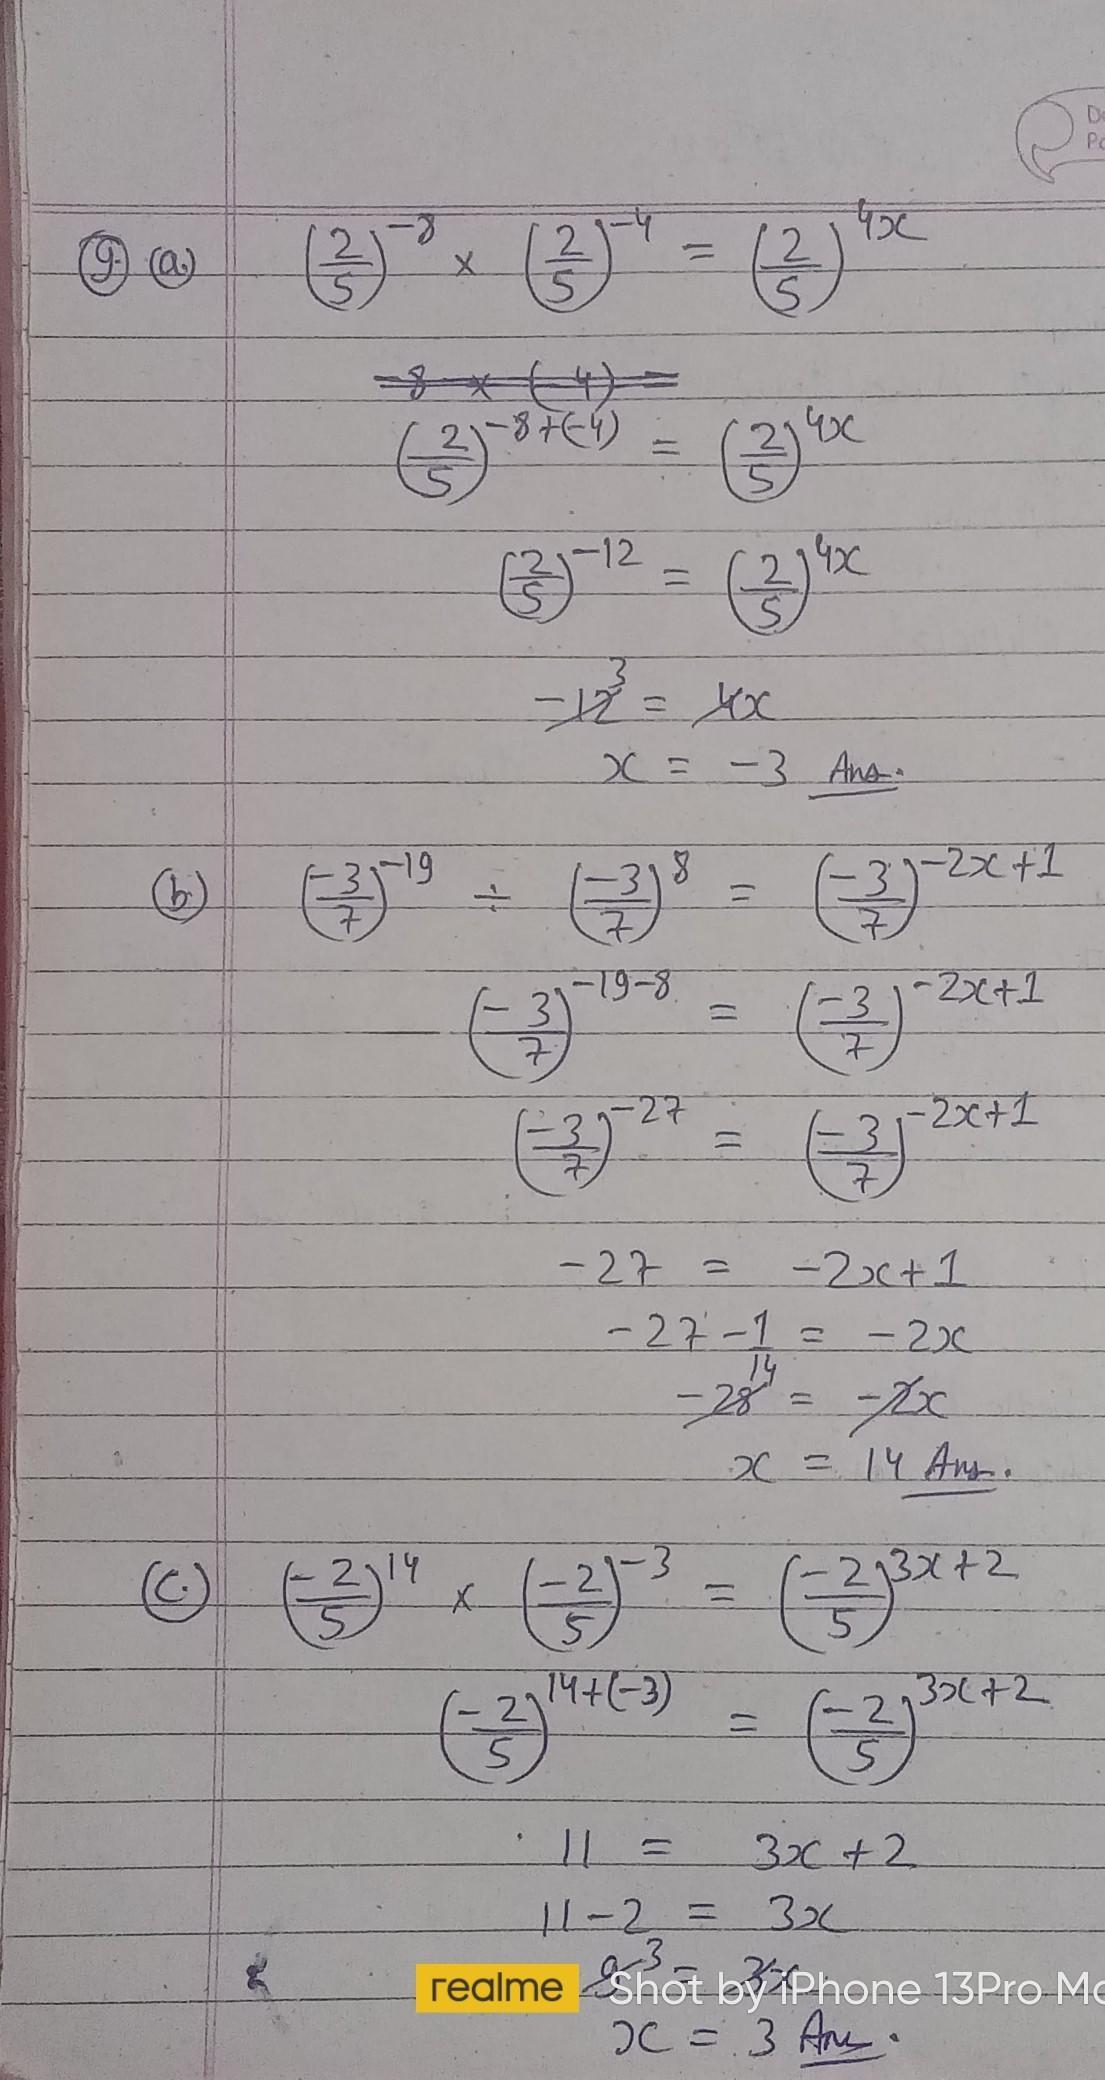 Da
Pa
9. (a) (2/5)^-8 × (2/5)^-4 = (2/5)^4x
-8 × (-4) =
(2/5)^-8+(-4) = (2/5)^4x
(2/5)^-12 = (2/5)^4x
-12 3 = 4x
x = -3 Ans.
(b.) (-3/7)^-19 ÷ (-3/7)^8 = (-3/7)^-2x+1
(-3/7)^-19-8 = (-3/7)^-2x+1
(-3/7)^-27 = (-3/7)^-2x+1
-27 = -2x+1
-27-1 = -2x
-28 14 = -2x
x = 14 Ans.
(c.) (-2/5)^14 × (-2/5)^-3 = (-2/5)^3x+2
(-2/5)^14+(-3) = (-2/5)^3x+2
11 = 3x+2
11-2 = 3x
9 3 = 3x
realme Shot by iPhone 13Pro Ma
x = 3 Ans.